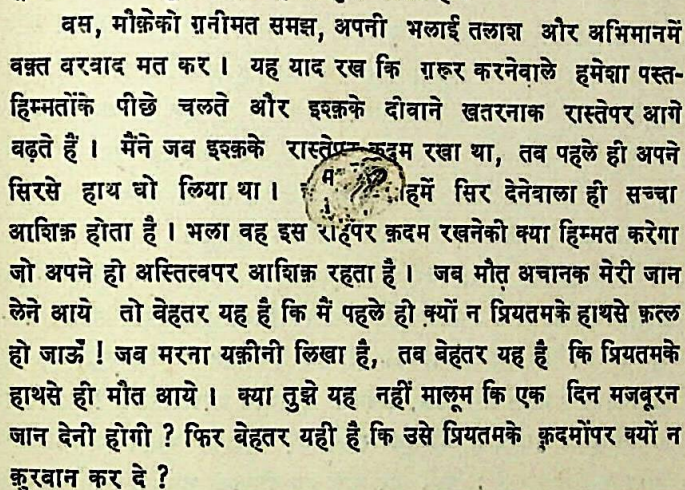 बस, मौक़ेको ग़नीमत समझ, अपनी भलाई तलाश और अभिमानमें
वक़्त बरबाद मत कर । यह याद रख कि ग़रूर करनेवाले हमेशा पस्त-
हिम्मतोंके पीछे चलते और इश्क़के दीवाने खतरनाक रास्तेपर आगे
बढ़ते हैं । मैंने जब इश्क़के रास्तेपर क़दम रखा था, तब पहले ही अपने
सिरसे हाथ धो लिया था । राहमें सिर देनेवाला ही सच्चा
आशिक़ होता है । भला वह इस राहपर क़दम रखनेको क्या हिम्मत करेगा
जो अपने ही अस्तित्वपर आशिक़ रहता है । जब मौत अचानक मेरी जान
लेने आये तो बेहतर यह है कि मैं पहले ही क्यों न प्रियतमके हाथसे क़त्ल
हो जाऊँ ! जब मरना यक़ीनी लिखा है, तब बेहतर यह है कि प्रियतमके
हाथसे ही मौत आये । क्या तुझे यह नहीं मालूम कि एक दिन मजबूरन
जान देनी होगी ? फिर बेहतर यही है कि उसे प्रियतमके क़दमोंपर क्यों न
क़ुरबान कर दे ?